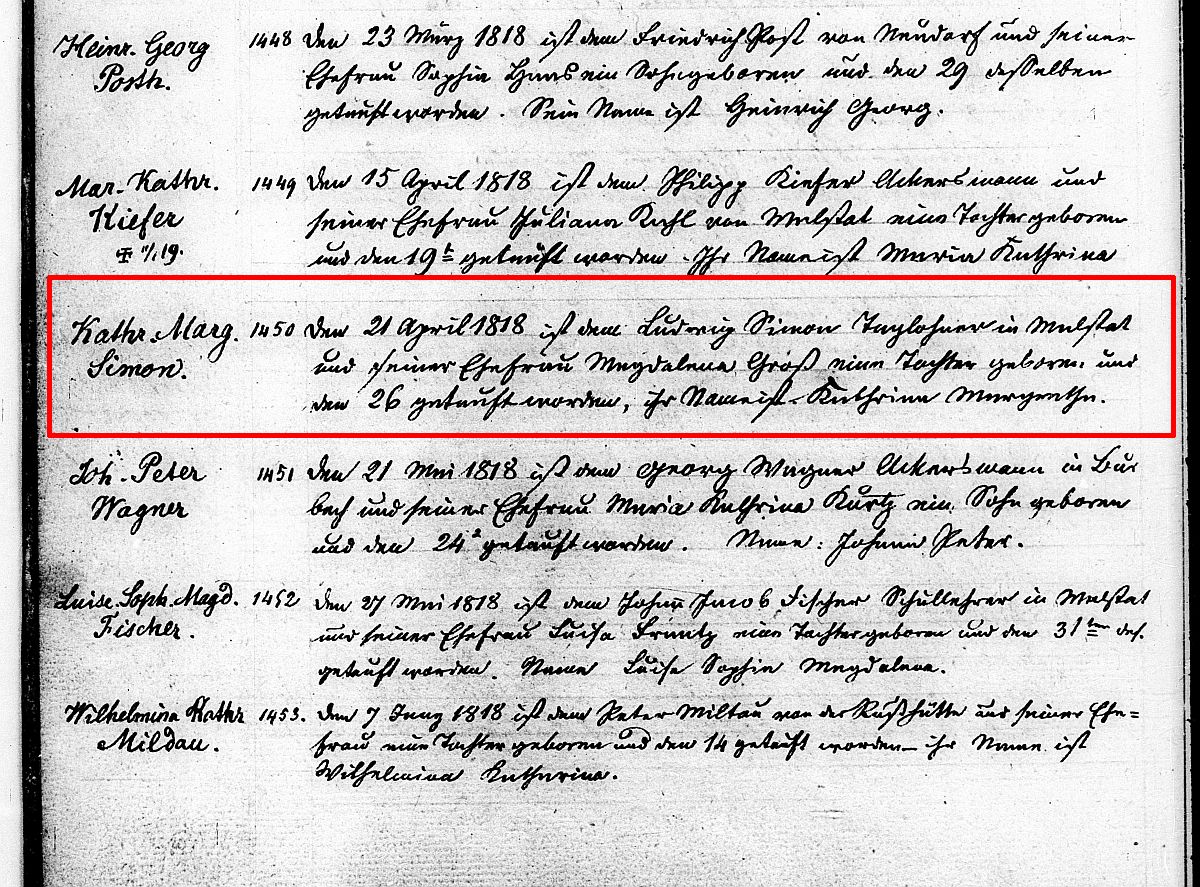 Heinr. Georg
Posth.
1448 Den 23 März 1818 ist dem Friedrich Post von Neudorf und seiner
Ehefrau Sophia Haas ein Sohn geboren und den 29 desselben
getauft worden. Sein Name ist Heinrich Georg.
Mar. Kathr.
Kiefer
1449 Den 15 April 1818 ist dem Philipp Kiefer Ackersmann und
seiner Ehefrau Juliana Kahl von Malstat eine Tochter geboren
und den 19t getauft worden. Ihr Name ist Maria Kathrina
Kathr. Marg.
Simon.
1450 Den 21 April 1818 ist dem Ludwig Simon Taglohner in Malstat
und seiner Ehefrau Magdalena Groß eine Tochter geboren und
den 26 getauft worden, ihr Name ist Kathrina Margretha.
Joh. Peter
Wagner
1451 Den 21 Mai 1818 ist dem Georg Wagner Ackersmann in Bur
bach und seiner Ehefrau Maria Kathrina Kurtz ein Sohn geboren
und den 24 getauft worden. Name: Johann Peter.
Luise. Soph. Magd.
Fischer.
1452 Den 27 Mai 1818 ist dem Johann Jacob Fischer Schullehrer in Malstat
und seiner Ehefrau Luisa eine Tochter geboren und den 31ten des.
getauft worden. Name Luisa Sophia Magdalena.
Wilhelmina Kathr
Mildau.
1453. Den 7 Juny 1818 ist dem Peter Miltau von der Rußhütte und seiner Ehe=
frau eine Tochter geboren und den 14 getauft worden – ihr Name ist
Wilhelmina Katharina.